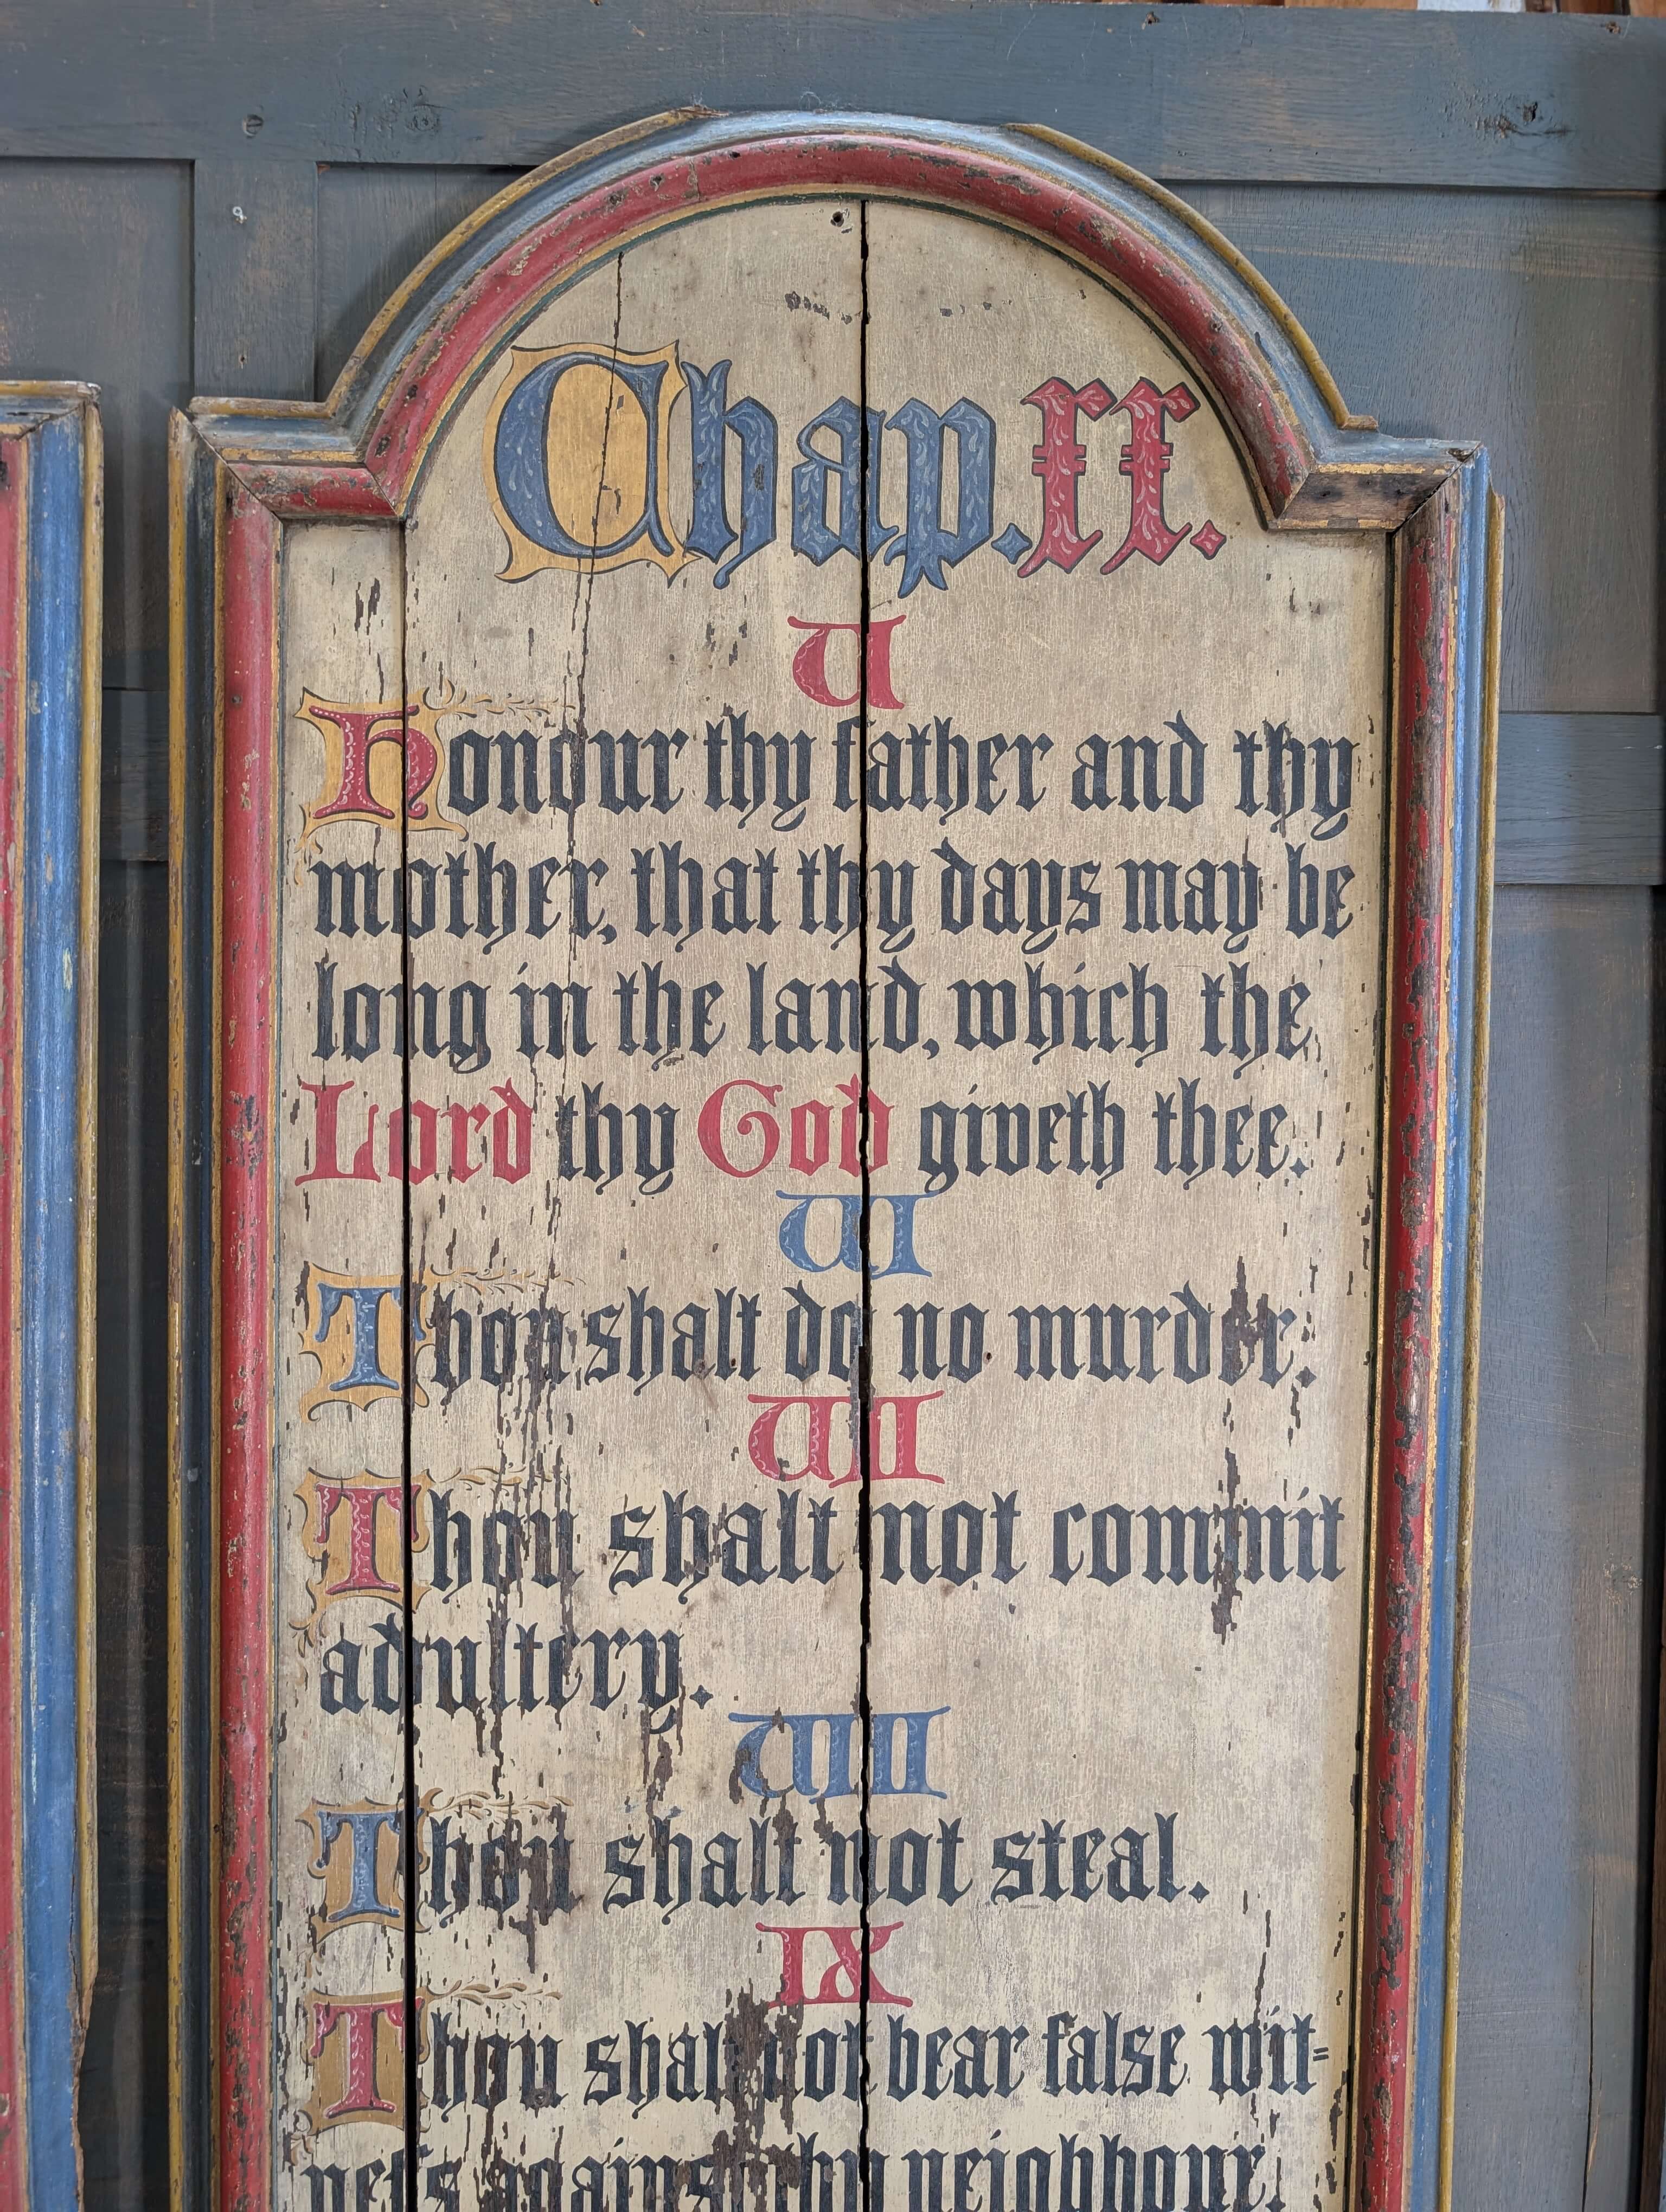 Chap. XX.
V
Honour thy father and thy
mother, that thy days may be
long in the land, which the
Lord thy God giveth thee.
VI
Thou shalt do no murder.
VII
Thou shalt not commit
adultery.
VIII
Thou shalt not steal.
IX
Thou shalt not bear false wit=
neſs against thy neighbour.